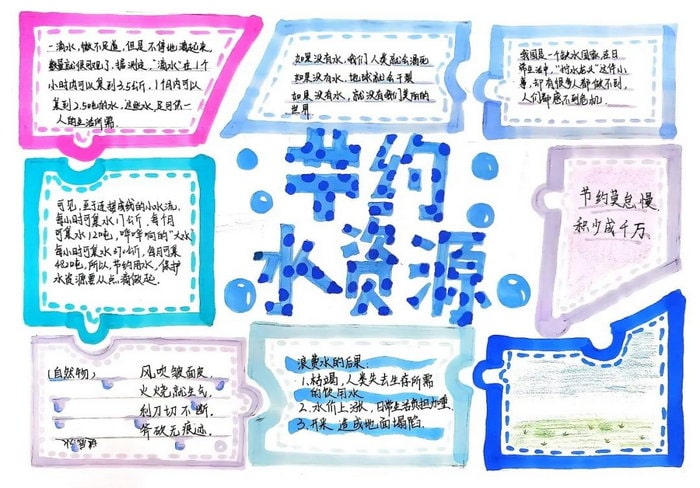 一滴水,微不足道,但是不停地滴起来
数量就很可观了,据测定,"滴水"在1个
小时内可以集到3.5公斤,1个月内可以
集到2.5吨的水,这些水足可供一
人的生活所需.
如果没有水,我们人类就会灭亡
如果没有水,地球就会干裂
如果没有水,就没有我们美丽的
世界
我国是一个缺水国家,在日
常生活中,"拧水龙头"这件小
事,却有很多人都做不到,
人们都意不到危机.
可见,至于连续成线的小水流,
每小时可集水17公斤,每个月
可集水12吨,哗哗响的"大水
所以,节约用水,保护
水资源要从点滴做起.
节约
水资源
节约莫怠慢
积少成千万
(自然物)
风吹皱面皮,
火烧就生气,
利刀切不断,
斧砍无痕迹.
浪费水的后果:
1.枯竭,人类失去生存所需
的饮用水
2.水价上涨,日常生活负担加重.
3.开采 造成地面塌陷.